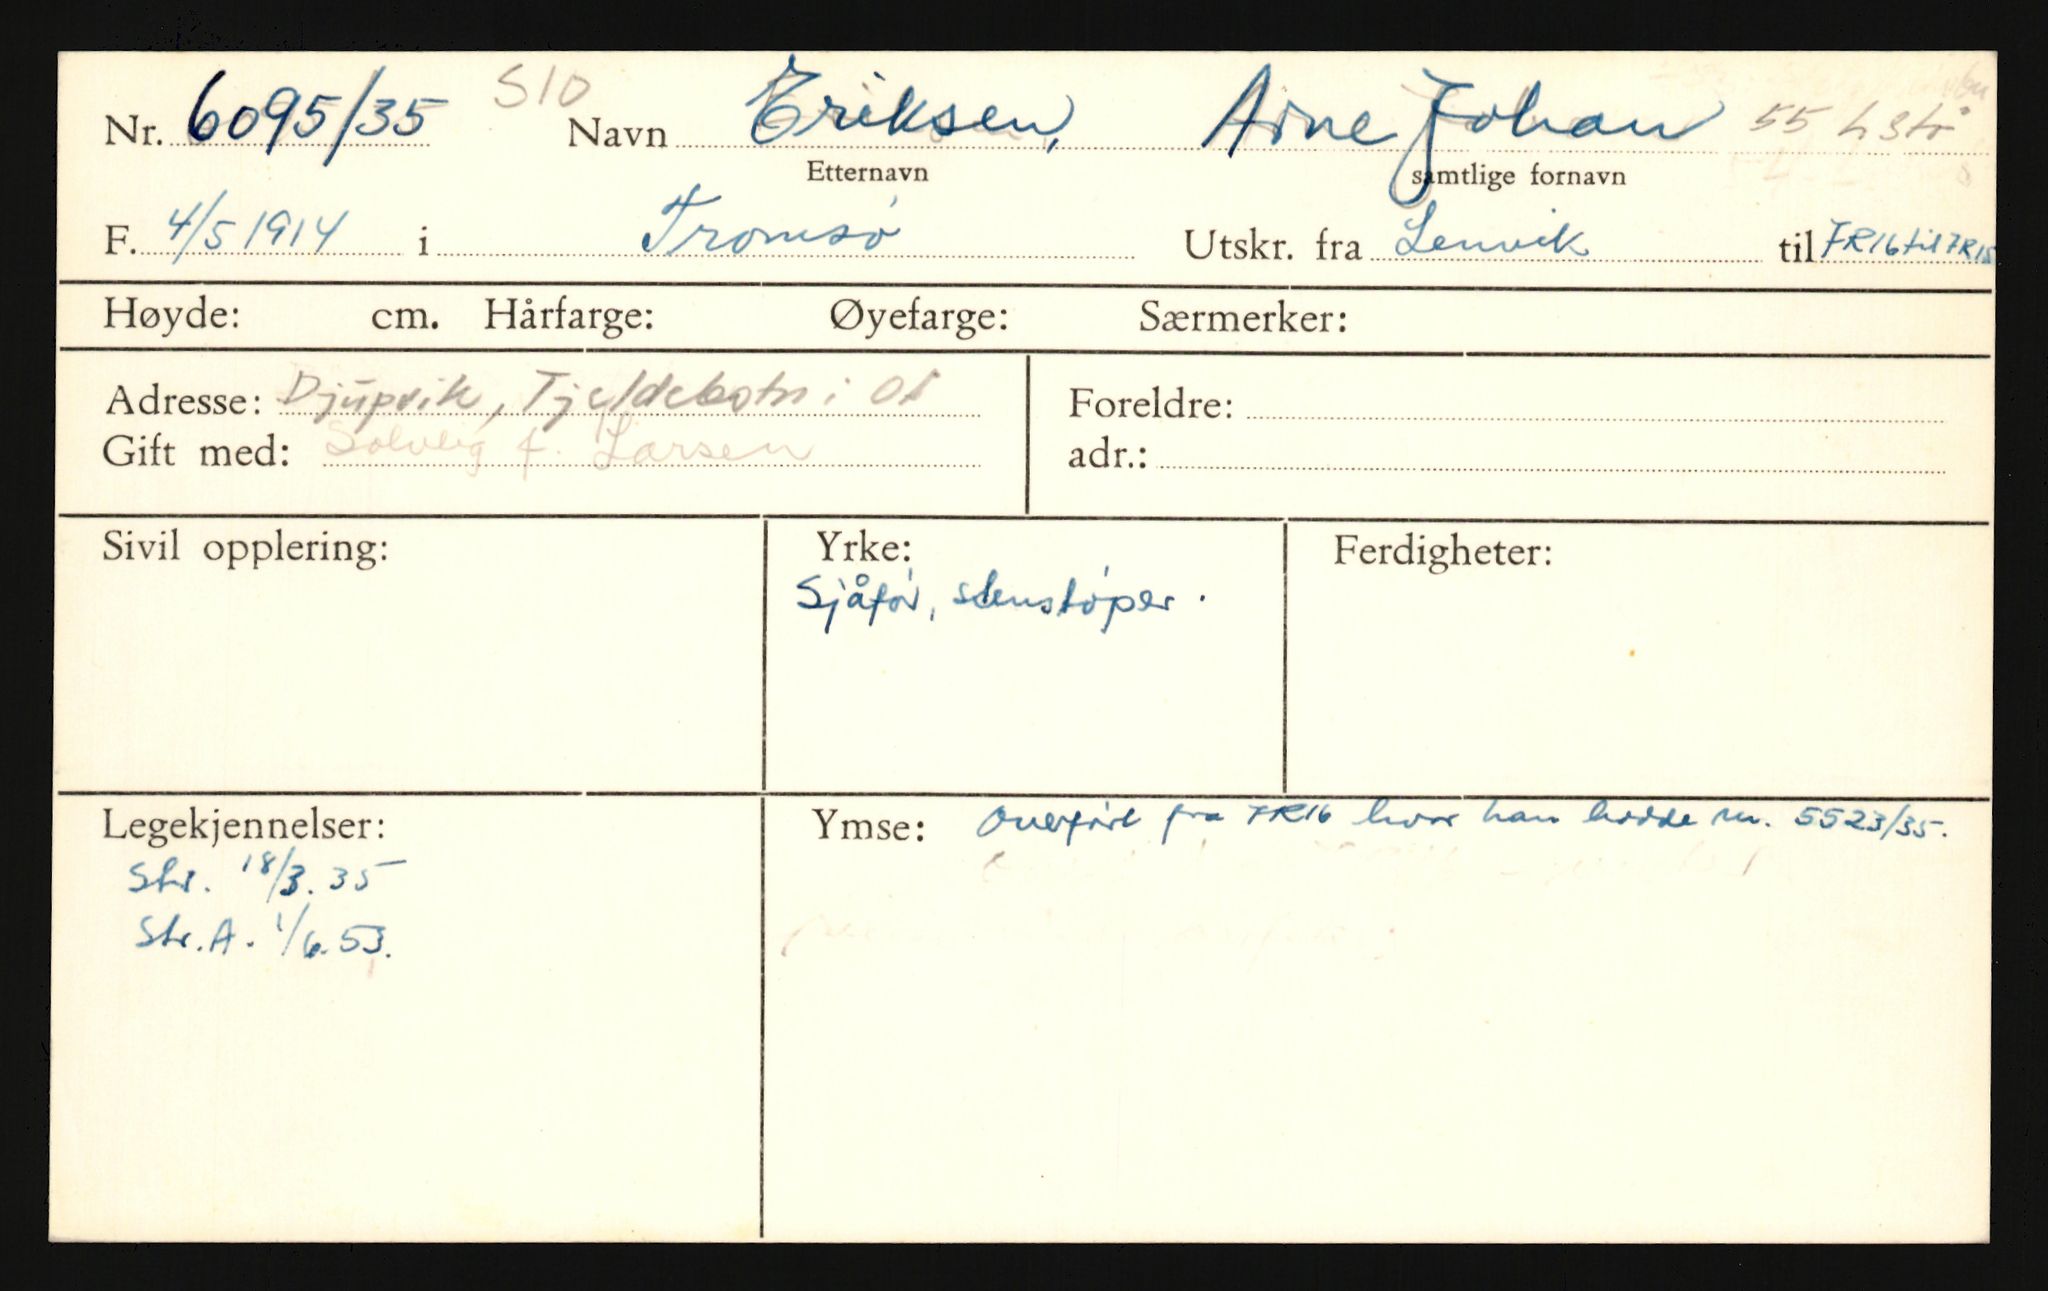 Nr. 6095/35 S10 Navn Eriksen, Arne Johan 55
Etternavn samtlige fornavn
F. 4/5 1914 i Tromsø Utskr. fra Lenvik til FR16 til FR15
Høyde: cm. Hårfarge: Øyefarge: Særmerker:
Adresse: Djupvik, Tjeldebotn i Of Foreldre:
Gift med: Solveig f. Larsen adr.:
Sivil opplering: Yrke: Ferdigheter:
Sjåfør, stenstøper.
Legekjennelser: Ymse: Overført fra FR16 hvor han hadde nr. 5523/35.
Str. 18/3. 35
Str. A. 1/6. 53.